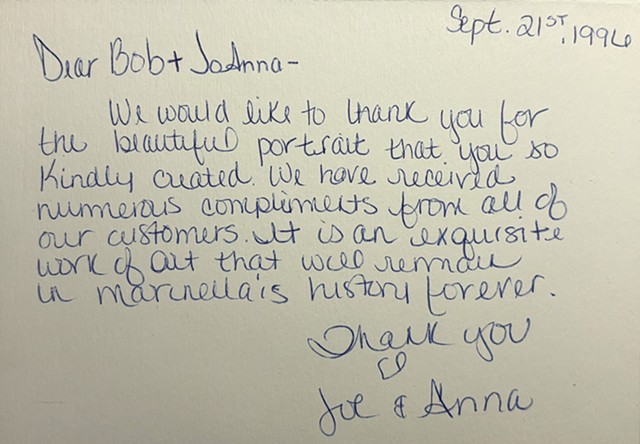 Sept. 21ST, 1996
Dear Bob + JoAnna -
We would like to thank you for
the beautiful portrait that you so
Kindly created. We have received
numerous compliments from all of
our customers. It is an exquisite
work of art that will remain
in marinella's history forever.
Thank you
Joe & Anna